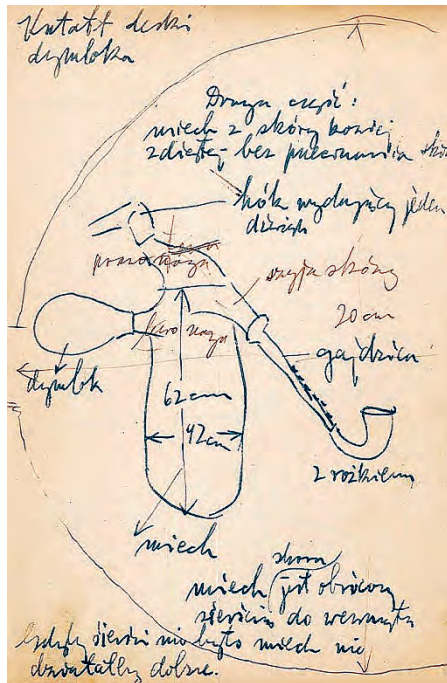 Kształt deski
dymloka
Druga część:
miech z skóry koziej
zdiętej bez przecinania
hók wydający jeden
dźwięk
szyja skóry
20 cm
gajdzica
lewo noga
dymlok
62 cm
42 cm
z rożkiem
miech
skora
miech jest obrócony
sierścią do wewnątrz
Gdyby sierści nie było miech nie
działałby dobrze.